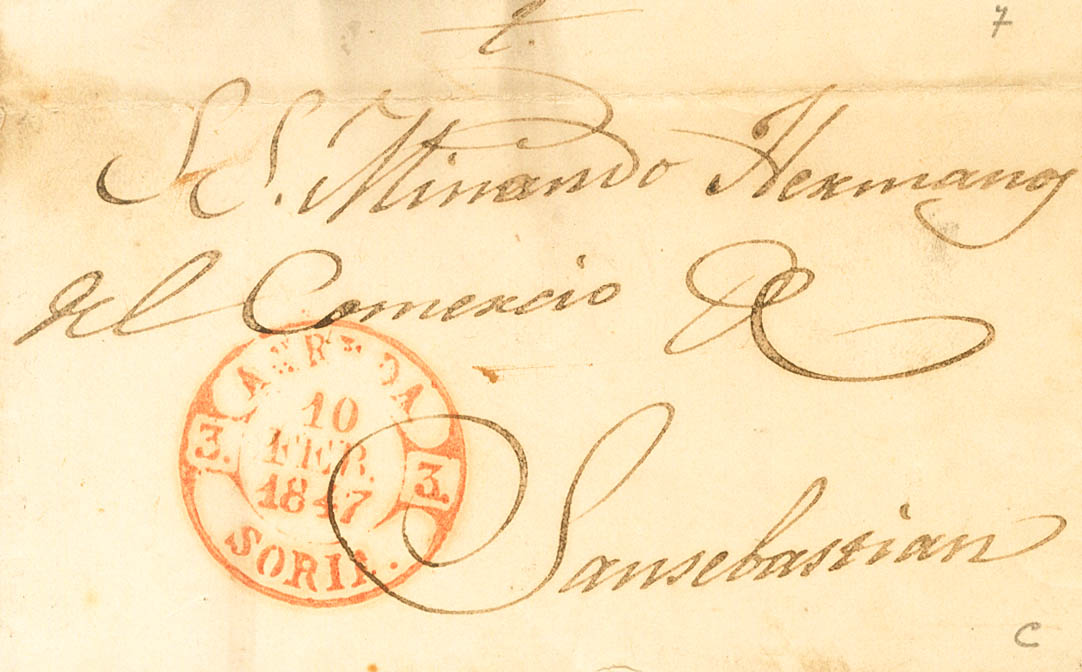 7
S.S. Mirando Hermanos
del Comercio de
AGREDA
3. 10 3.
FEB.
1847
SORIA.
Sansebastian
C